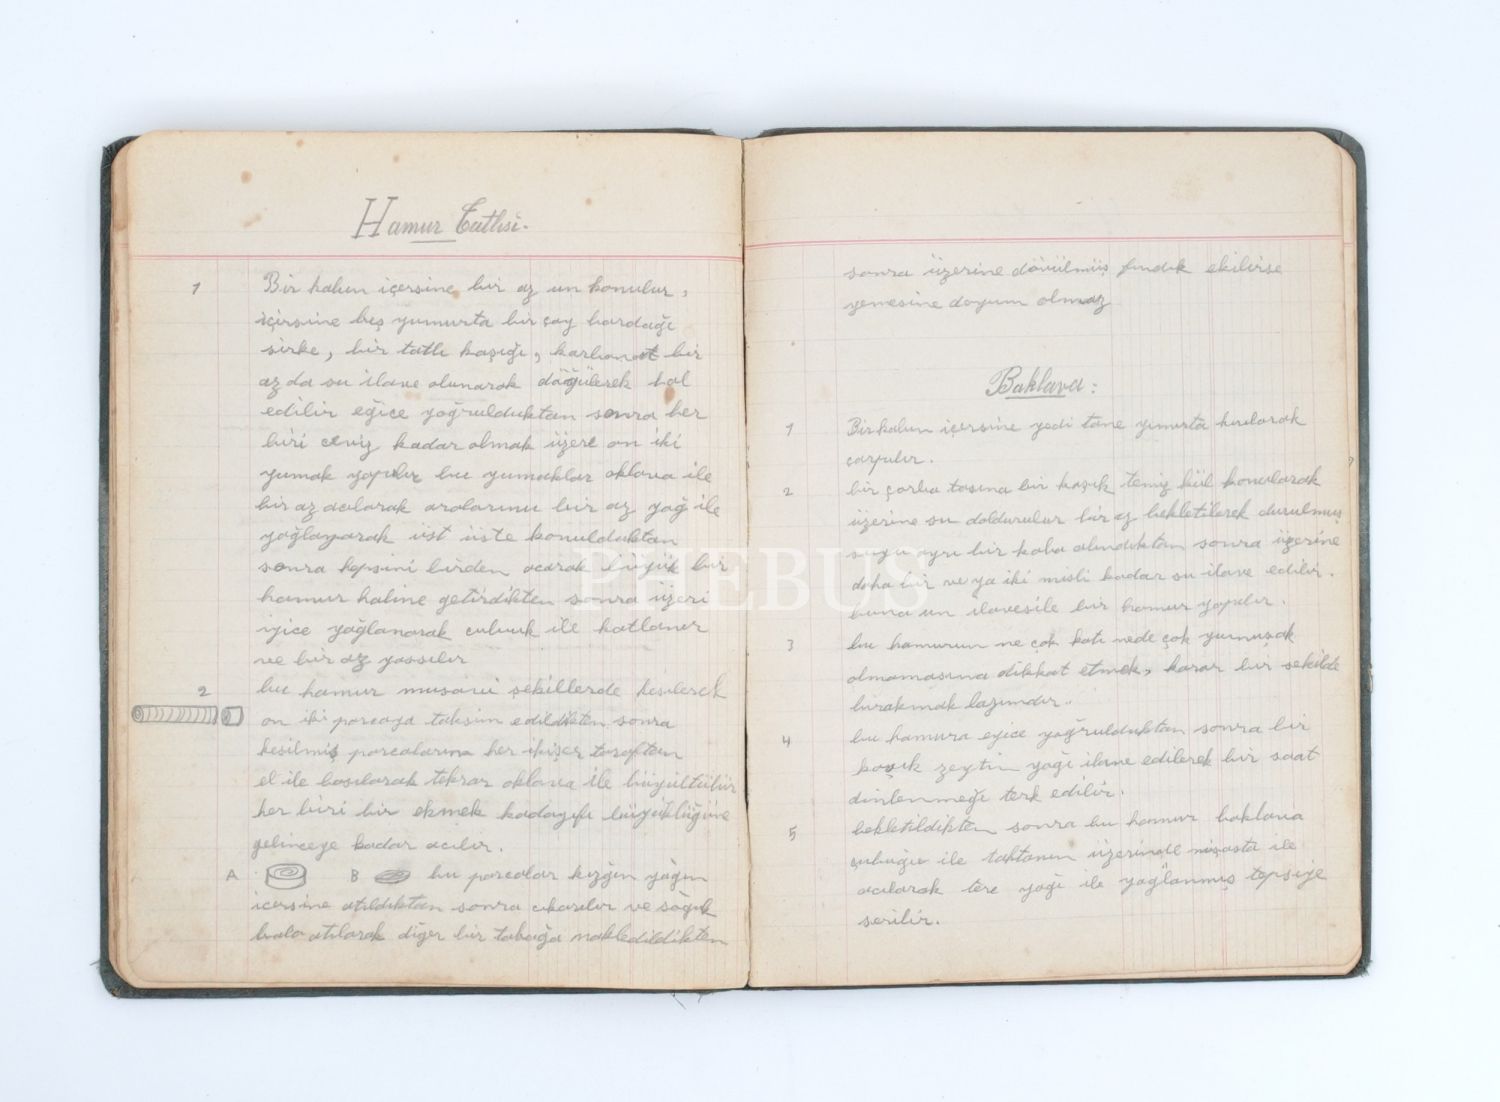 Hamur Tatlısı.
1 Bir kabın içersine bir az un konulur,
içirsine beş yumurta bir çay bardağı
sirke, bir tatlı kaşığı, karbonat bir
az da su ilave olunarak döğülerek hal
edilir eğice yoğrulduktan sonra her
biri ceviz kadar olmak üzere on iki
yumak yapılır bu yumaklar oklava ile
bir az acılarak aralarını bir az yağ ile
yağlayarak üst üste konulduktan
sonra hepsini birden acarak büyük bir
hamur haline getirdikten sonra üzeri
iyice yağlanarak cubuk ile katlanır
ve bir az yassılır
2 bu hamur musavi şekillerde kesilerek
on iki parcaya taksim edildikten sonra
kesilmiş parcalarına her ikişer taraftan
el ile basılarak tekrar oklava ile büyültülür
her biri bir ekmek kadayıfı büyüklüğüne
gelinceye kadar acılır.
A B bu parcalar kızğın yağın
icersine atıldıktan sonra cıkarılır ve soğuk
bala atılarak diğer bir tabağa nakledildikten
sonra üzerine dövülmüş fındık ekilirse
yemesine doyum olmaz
Baklava:
1 Bir kabın içersine yedi tane yımırta kırılarak
carpılır.
2 bir çorba tasına bir kaşık temiz kül konularak
üzerine su doldurulur bir az bekletilerek durulmuş
suyu ayrı bir kaba alındıktan sonra üzerine
daha bir ve ya iki misli kadar su ilave edilir.
buna un ilavesile bir hamur yapılır.
3 bu hamurun ne çok katı nede çok yumuşak
olmamasına dikkat etmek, karar bir sekilde
bırakmak lazımdır.
4 bu hamura eyice yoğrulduktan sonra bir
kaşık zeytin yağı ilave edilerek bir saat
dinlenmeğe terk edilir.
5 bekletildikten sonra bu hamur baklava
çubuğu ile tahtanın üzerinde nişasta ile
acılarak tere yağı ile yağlanmış tepsiye
serilir.
PHEBUS